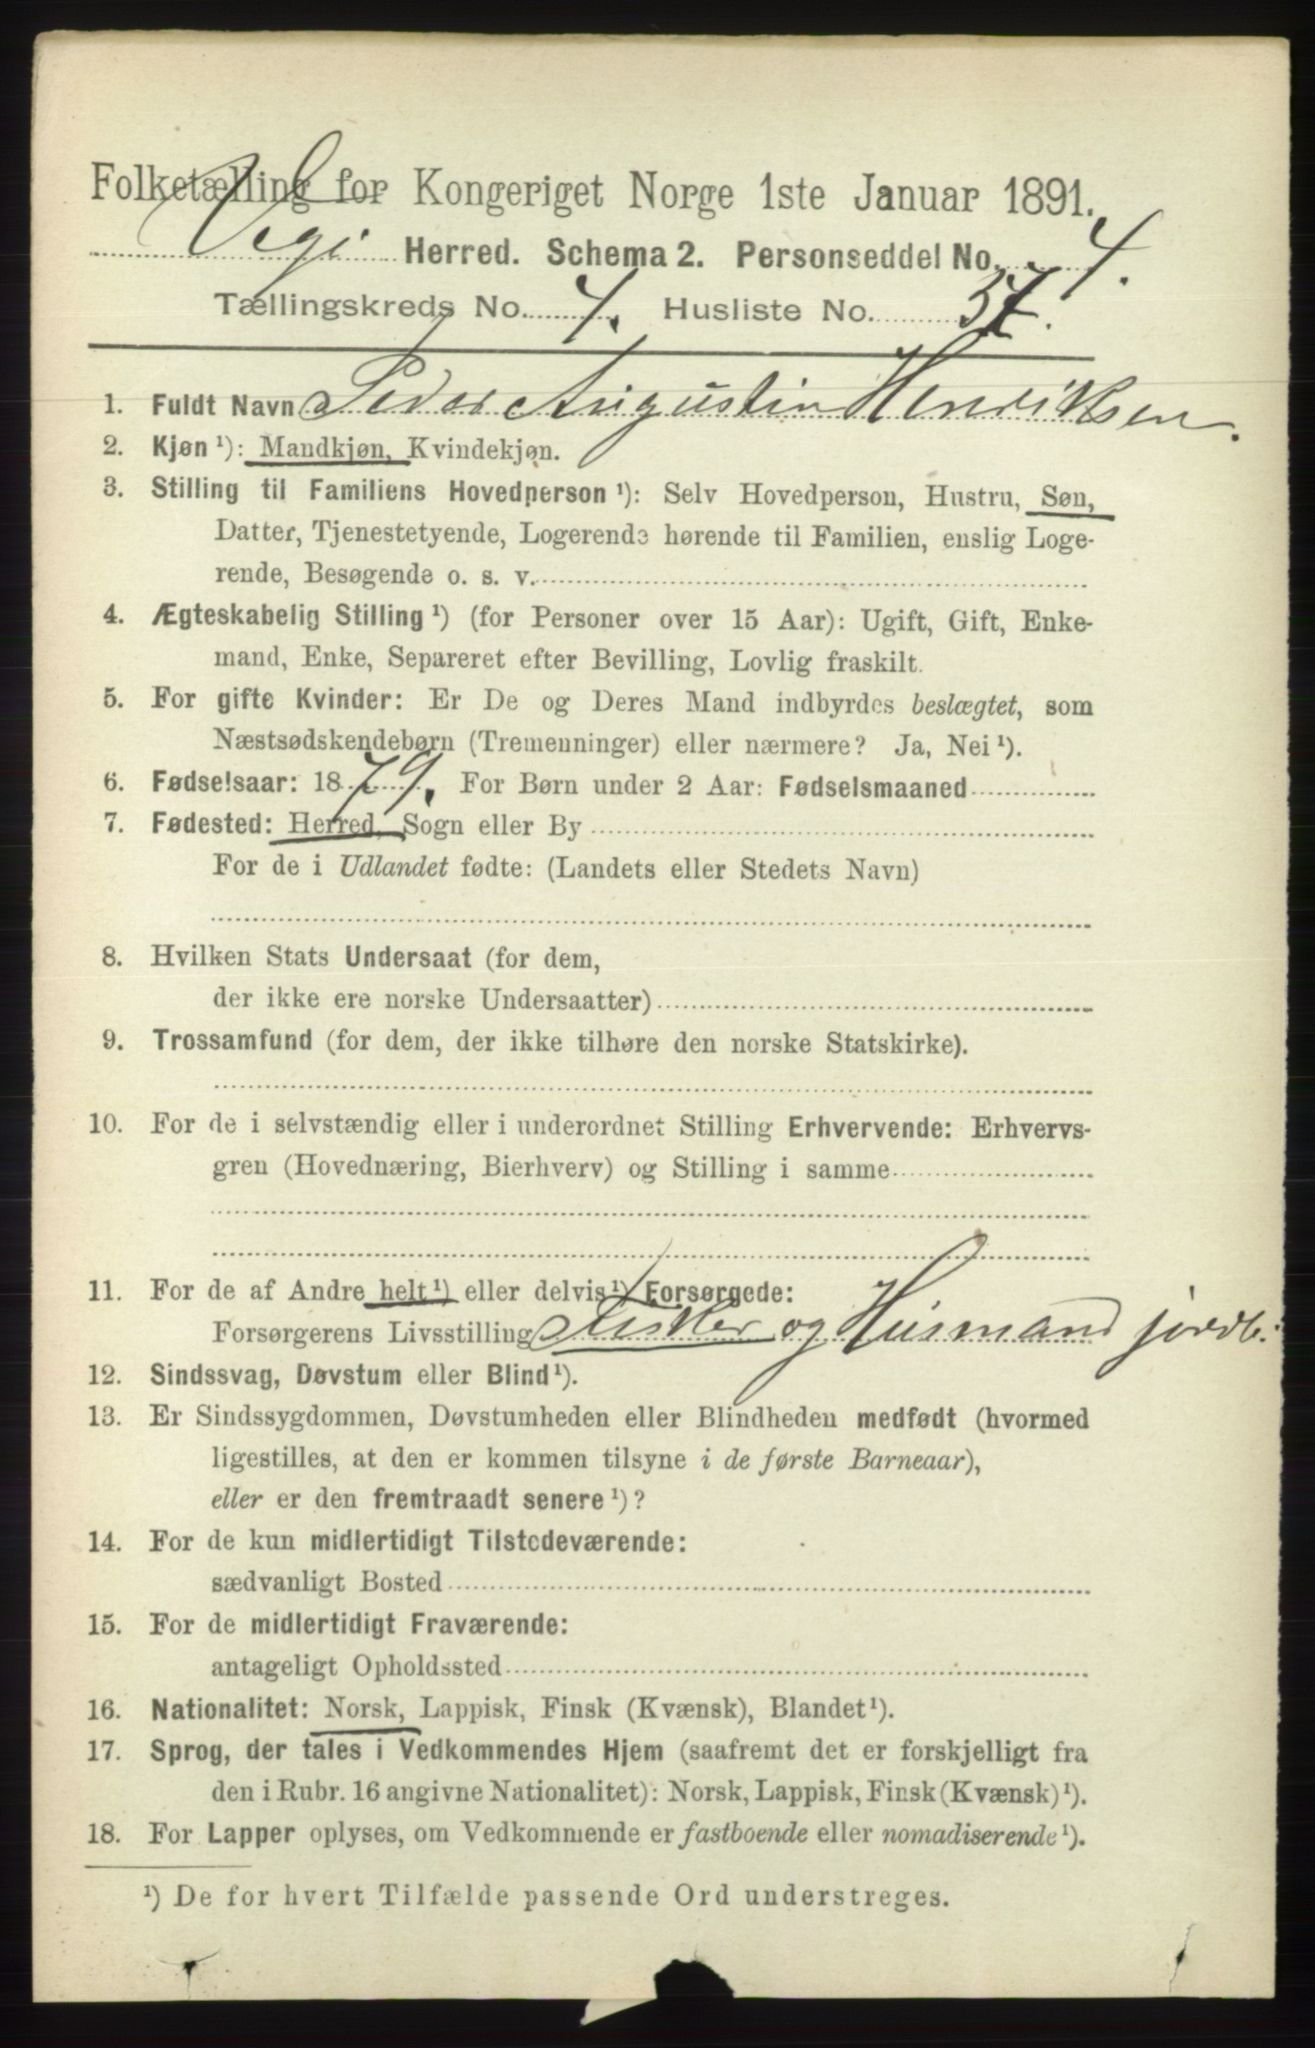 Folketælling for Kongeriget Norge 1ste Januar 1891.
Herred. Schema 2. Personseddel No. 4.
Tællingskreds No. 4. Husliste No. 37.
1. Fuldt Navn Peder Augustin Henriksen.
2. Kjøn ¹): Mandkjøn, Kvindekjøn.
3. Stilling til Familiens Hovedperson ¹): Selv Hovedperson, Hustru, Søn,
Datter, Tjenestetyende, Logerende hørende til Familien, enslig Loge-
rende, Besøgende o. s. v.
4. Ægteskabelig Stilling ¹) (for Personer over 15 Aar): Ugift, Gift, Enke-
mand, Enke, Separeret efter Bevilling, Lovlig fraskilt.
5. For gifte Kvinder: Er De og Deres Mand indbyrdes beslægtet, som
Næstsødskendebørn (Tremenninger) eller nærmere? Ja, Nei ¹).
6. Fødselsaar: 1879. For Børn under 2 Aar: Fødselsmaaned
7. Fødested: Herred, Sogn eller By
For de i Udlandet fødte: (Landets eller Stedets Navn)
8. Hvilken Stats Undersaat (for dem,
der ikke ere norske Undersaatter)
9. Trossamfund (for dem, der ikke tilhøre den norske Statskirke).
10. For de i selvstændig eller i underordnet Stilling Erhvervende: Erhvervs-
gren (Hovednæring, Bierhverv) og Stilling i samme
11. For de af Andre helt ¹) eller delvis ¹) Forsørgede:
Forsørgerens Livsstilling Fisker og Husmand jordb.
12. Sindssvag, Døvstum eller Blind ¹).
13. Er Sindssygdommen, Døvstumheden eller Blindheden medfødt (hvormed
ligestilles, at den er kommen tilsyne i de første Barneaar),
eller er den fremtraadt senere ¹)?
14. For de kun midlertidigt Tilstedeværende:
sædvanligt Bosted
15. For de midlertidigt Fraværende:
antageligt Opholdssted
16. Nationalitet: Norsk, Lappisk, Finsk (Kvænsk), Blandet ¹).
17. Sprog, der tales i Vedkommendes Hjem (saafremt det er forskjelligt fra
den i Rubr. 16 angivne Nationalitet): Norsk, Lappisk, Finsk (Kvænsk) ¹).
18. For Lapper oplyses, om Vedkommende er fastboende eller nomadiserende ¹).
¹) De for hvert Tilfælde passende Ord understreges.